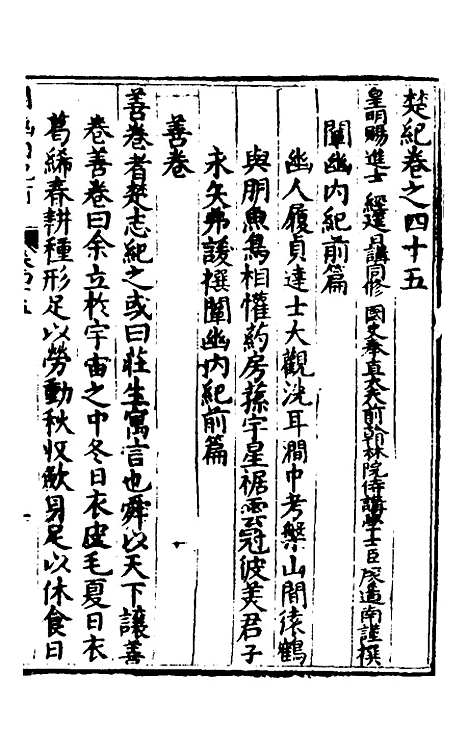 楚紀卷之四十五
皇明賜進士 經筵日講同修 國史奉直大夫前翰林院侍講學士臣廖道南謹撰
闡幽內紀前篇
幽人履貞達士大觀洗耳澗中考槃山間猿鶴
與朋魚鳥相懽葯房蓀宇星裾雲冠彼美君子
永矢弗諼撰闡幽內紀前篇
善卷
善卷者楚志紀之或曰莊生寓言也舜以天下讓善
卷善卷曰余立於宇宙之中冬日衣皮毛夏日衣
葛絺春耕種形足以勞動秋收斂身足以休食日